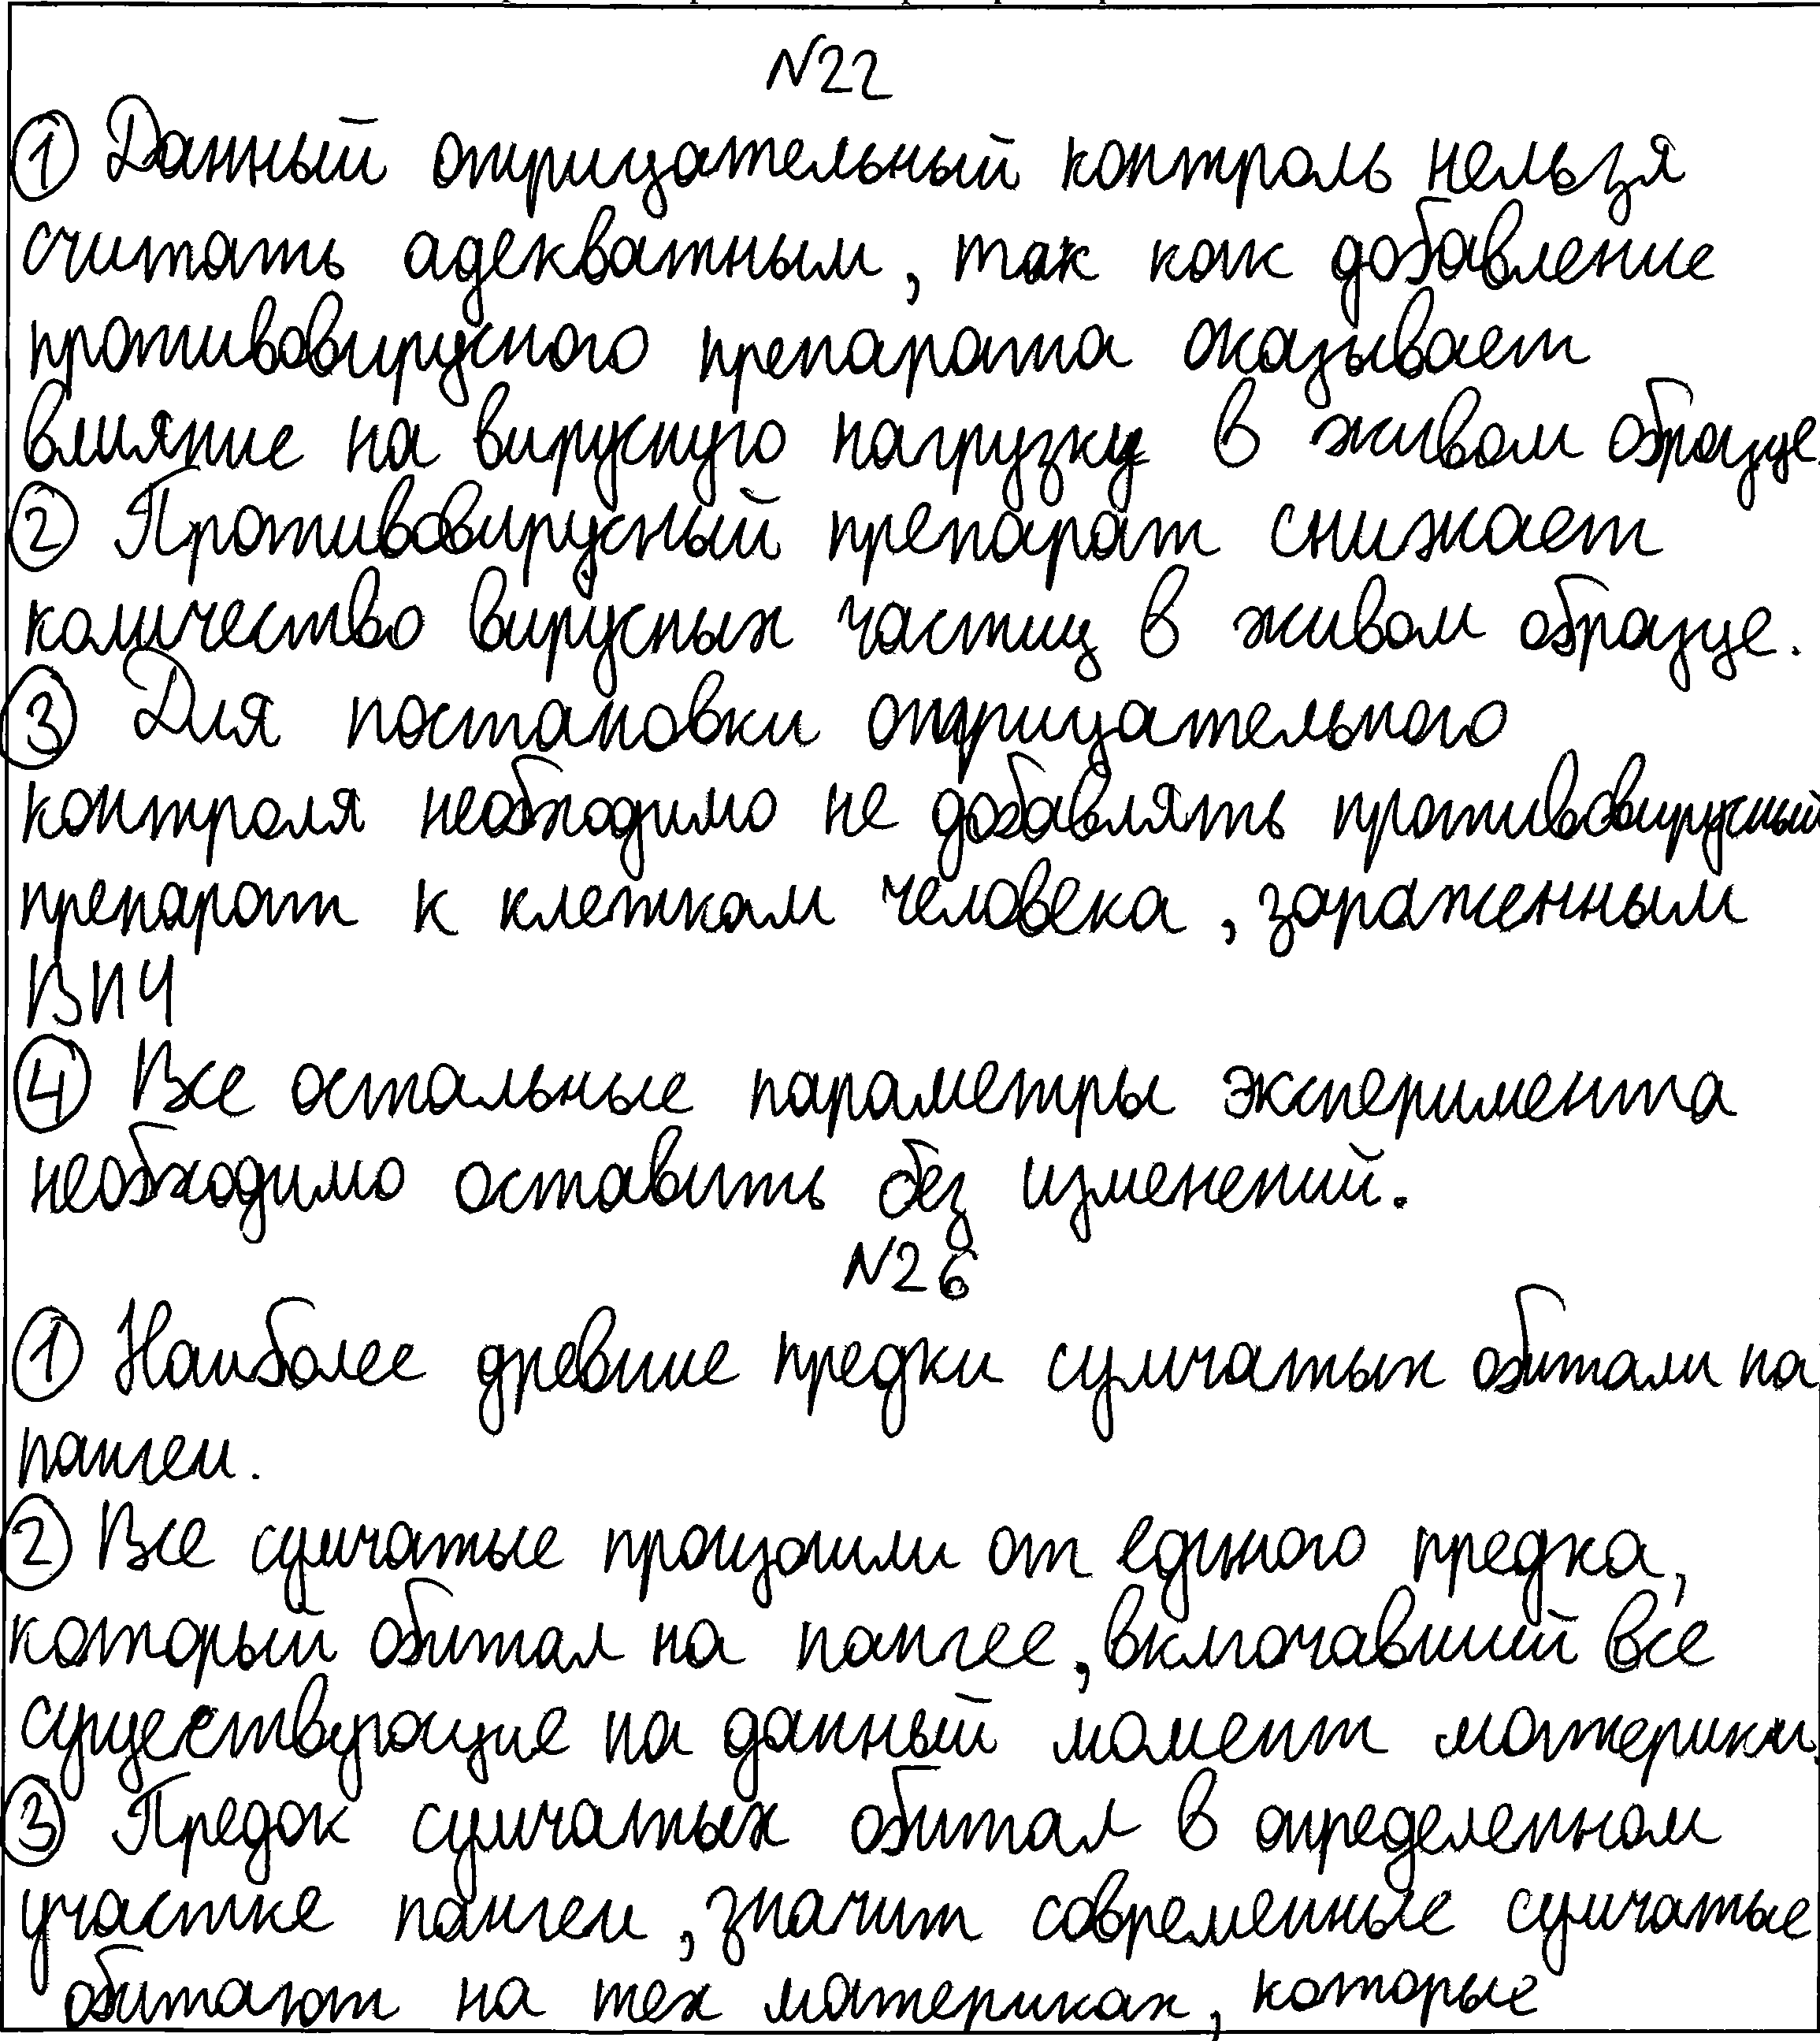 N22
① Данный отрицательный контроль нельзя
считать адекватным, так как добавление
противовирусного препарата оказывает
влияние на вирусную нагрузку в живом образце.
② Противовирусный препарат снижает
количество вирусных частиц в живом образце.
③ Для постановки отрицательного
контроля необходимо не добавлять противовирусный
препарат к клеткам человека, зараженным
ВИЧ
④ Все остальные параметры эксперимента
необходимо оставить без изменений.
N26
① Наиболее древние предки сумчатых обитали на
пангеи.
② Все сумчатые произошли от единого предка,
который обитал на пангее, включавший все
существующие на данный момент материки.
③ Предок сумчатых обитал в определенном
участке пангеи, значит современные сумчатые
обитают на тех материках, которые